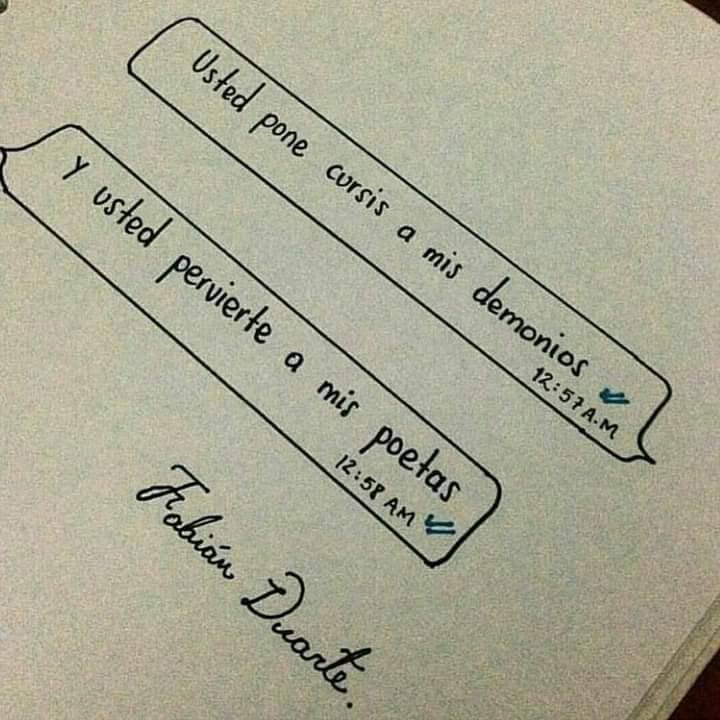 Usted pone cursis a mis demonios
12:57 A.M
Y usted pervierte a mis poetas
12:58 AM
Fabián Duarte.